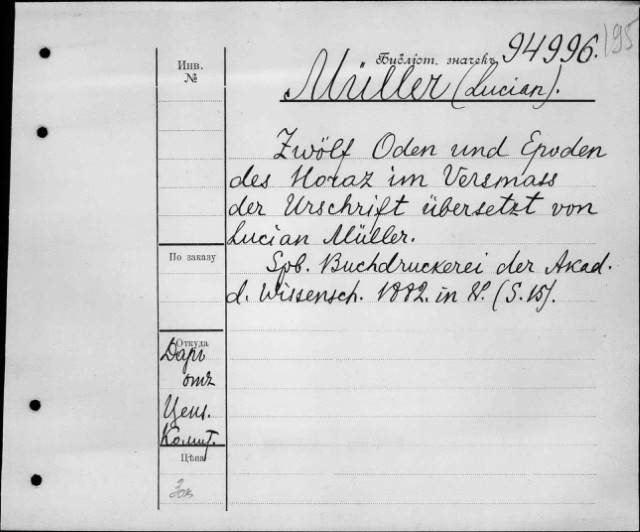 195
Библіот. значекъ 94996.
Инв.
№
Müller (Lucian).
Zwölf Oden und Epoden
des Horaz im Versmass
der Urschrift übersetzt von
Lucian Müller.
По заказу
Spb. Buchdruckerei der Akad.
d. Wissensch. 1882. in 8°. (S. 15).
Откуда
Даръ
отъ
Ценз.
Комит.
Цѣна